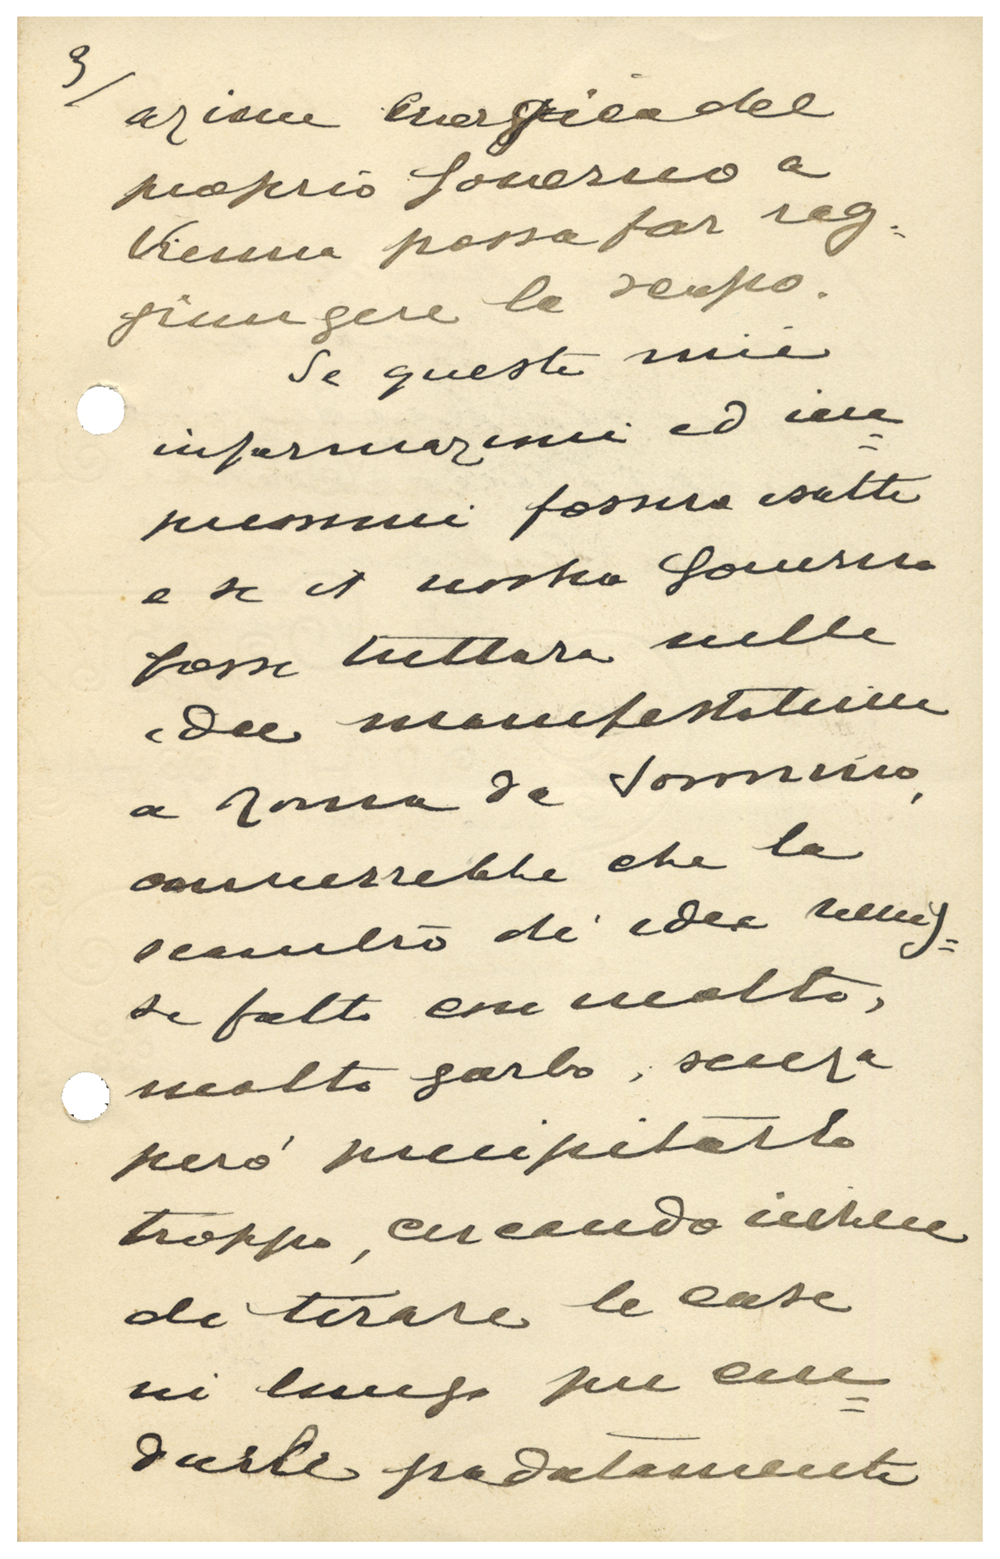 3/
azione energica del
proprio Governo a
Vienna possa far rag-
giungere lo scopo.
Se queste mie
informazioni ed im=
pressioni fossero esatte
e se il nostro Governo
fosse tuttora nelle
idee manifestatemi
a Roma da Sonnino,
converrebbe che lo
scambio di idee venis=
se fatto con molto,
molto garbo, senza
però precipitarlo
troppo, cercando invece
di tirare le cose
in lungo per con=
durle gradatamente